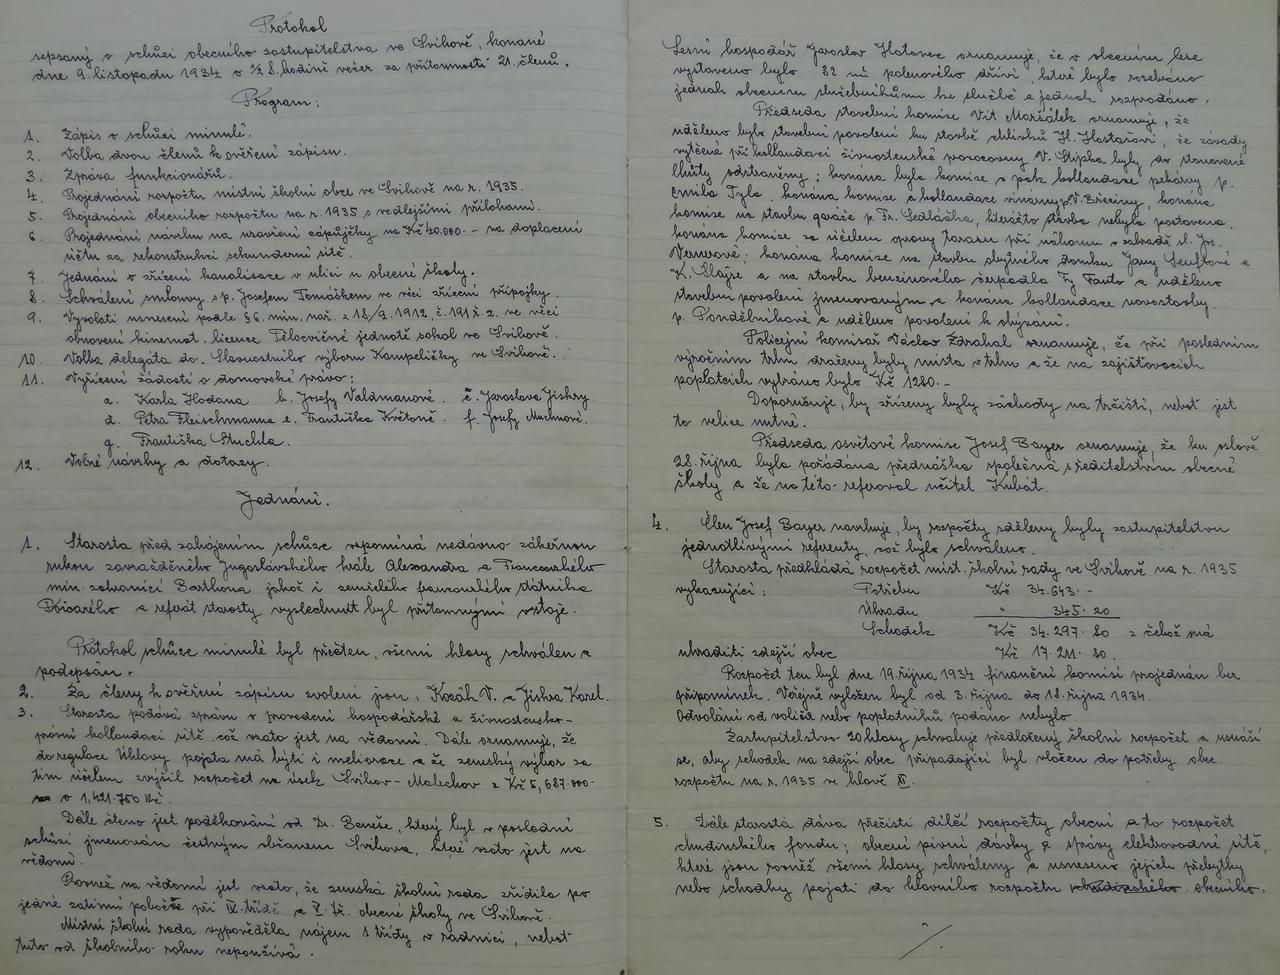 Protokol
sepsaný o schůzi obecního zastupitelstva ve Švihově, konané
dne 9. listopadu 1934 o ½ 8. hodině večer za přítomnosti 21. členů.
Program:
1. Zápis o schůzi minulé.
2. Volba dvou členů k ověření zápisu.
3. Zpráva funkcionářů.
4. Projednání rozpočtu místní školní obce ve Švihově na r. 1935.
5. Projednání obecního rozpočtu na r. 1935 s vedlejšími přílohami.
6. Projednání návrhu na uzavření zápůjčky na Kč 40.000.- na doplacení
účtu za rekonstrukci sekunderní sítě.
7. Jednání o zřízení kanalisace v ulici u obecné školy.
8. Schválení smlouvy s p. Josefem Tomáškem ve věci zřízení přípojky.
9. Vyvolati usnesení podle § 6. min. nař. z 18/9. 1912, č. 191 ř. z. ve věci
obnovení kinemat. licence Tělocvičné jednotě sokol ve Švihově.
10. Volba delegáta do Slavnostního výboru Kampeličky ve Švihově.
11. Vyřízení žádostí o domovské právo:
a. Karla Hodana b. Josefy Valdmanové. c. Jaroslava Jiskry.
d. Petra Fleischmanna e. Františka Květoně. f. Josefy Machnové.
g. Františka Stuchla.
12. Volné návrhy a dotazy.
Jednání.
1. Starosta před zahájením schůze vzpomíná nedávno zákeřnou
rukou zavražděného Jugoslávského krále Alexandra a Francouzského
min. zahraničí Barthoua jakož i zemřelého francouzského státníka
Poicarého a referát starosty vyslechnut byl přítomnými vstoje.
Protokol schůze minulé byl přečten, všemi hlasy schválen a
podepsán.
2. Za členy k ověření zápisu zvoleni jsou, Kozák V. a Jiskra Karel.
3. Starosta podává zprávu o provedení hospodářské a živnostensko-
právní kollaudaci sítě což vzato jest na vědomí. Dále oznamuje, že
do regulace Úhlavy pojata má býti i meliorace a že zemský výbor za
tím účelem zvýšil rozpočet na úsek Švihov - Malechov z Kč 5,687.000.-
o 1,421.750 Kč.
Dále čteno jest poděkování od Dr. Beneše, který byl v poslední
schůzi jmenován čestným občanem Švihova, které vzato jest na
vědomí.
Rovněž na vědomí jest vzato, že zemská školní rada zřídila po
jedné zatímní pobočce při IV. třídě a V. tř. obecné školy ve Švihově.
Místní školní rada vypověděla nájem 1 třídy v radnici, neboť
tuto od školního roku nepoužívá.
Lesní hospodář Jaroslav Hotovec oznamuje, že v obecním lese
vystaveno bylo 82 m³ polenového dříví, které bylo rozebráno
jednak obecním služebníkům ke službě a jednak rozprodáno.
Předseda stavební komise Vít Maršálek oznamuje, že
uděleno bylo stavební povolení ku stavbě chlívků H. Hostašovi, že závady
vytčené při kollaudaci živnostenské provozovny V. Štipka byly do stanovené
lhůty odstraněny; konána byla komise s pak kollaudace pekárny p.
Emila Tyla, konána komise a kollaudace vinárny p. V. Březiny, konána
komise na stavbu garáže p. Fr. Sedláčka, kterážto stavba nebyla postavena.
konána komise za účelem opravy tarasu při náhonu v zahradě sl. Jos.
Vernerové; konána komise na stavbu obytného domku Jany Seuftové a
K. Slajse a na stavbu benzinového čerpadla Fy Fanto a uděleno
stavební povolení jmenovaným a konána kollaudace novostavby
p. Pondělníkové a uděleno povolení k obývání.
Policejní komisař Václav Zdrahal oznamuje, že při posledním
výročním trhu draženy byly místa v trhu a že na zajišťovacích
poplatcích vybráno bylo Kč 1280.-
Doporučuje, by zřízeny byly záchody na tržišti, neboť jest
to velice nutné.
Předseda osvětové komise Josef Bayer oznamuje, že ku oslavě
28. října byla pořádána přednáška společná s ředitelstvím obecné
školy a že na této referoval učitel Kubát.
4. Člen Josef Bayer navrhuje, by rozpočty sděleny byly zastupitelstvu
jednotlivými referenty, což bylo schváleno.
Starosta předkládá rozpočet míst. školní rady ve Švihově na r. 1935
vykazující: Potřebu Kč 34.643.-
Úhradu " 345.20
Schodek Kč 34.297.80 z čehož má
uhraditi zdejší obec Kč 17.211.80.
Rozpočet ten byl dne 19. října 1934 finanční komisí projednán bez
připomínek. Veřejně vyložen byl od 3. října do 18. října 1934.
Odvolání od voličů nebo poplatníků podáno nebylo
Zastupitelstvo 20 hlasy schvaluje předložený školní rozpočet a usnáší
se, aby schodek na zdejší obec připadající byl vložen do potřeby obec.
rozpočtu na r. 1935 ve hlavě XI.
5. Dále starosta dává přečísti dílčí rozpočty obecní a to rozpočet
chudinského fondu; obecní pivní dávky a správy elektrovodné sítě,
které jsou rovněž všemi hlasy schváleny a usneseno jejich přebytky
nebo schodky pojati do hlavního rozpočtu chudinského obecního.
./.